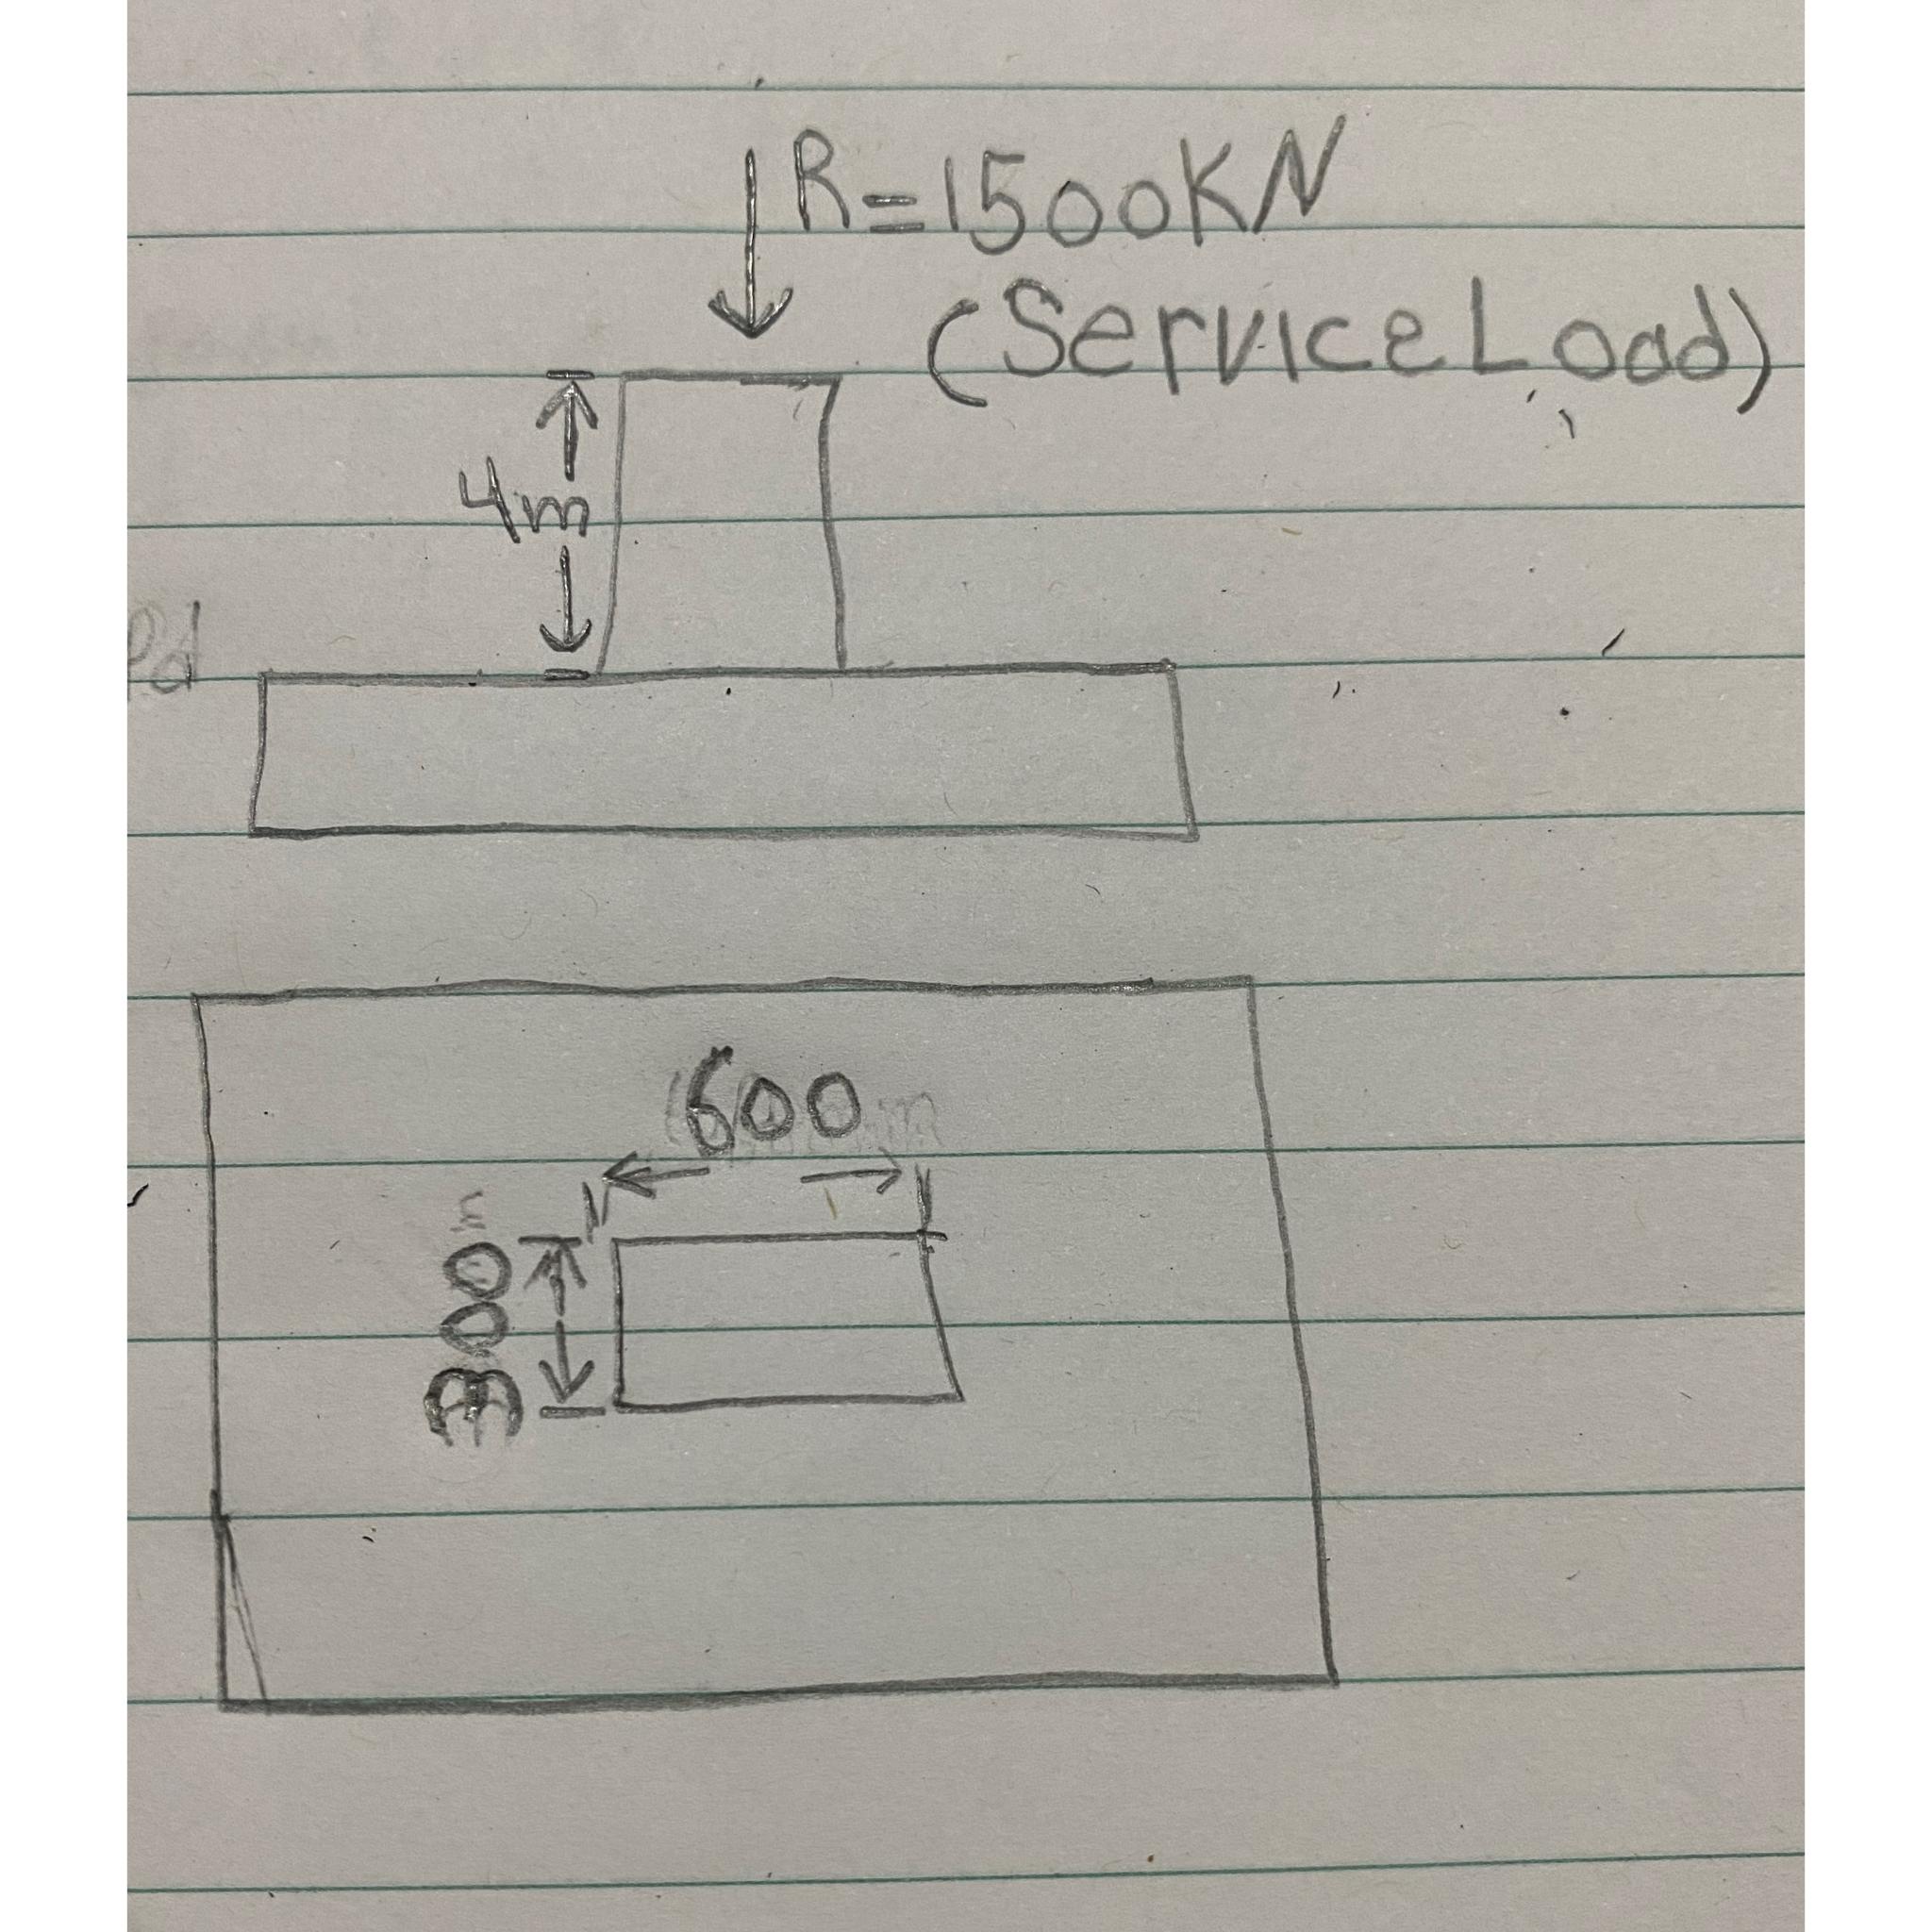 R=1500KN
(Service Load)
4m
600
300